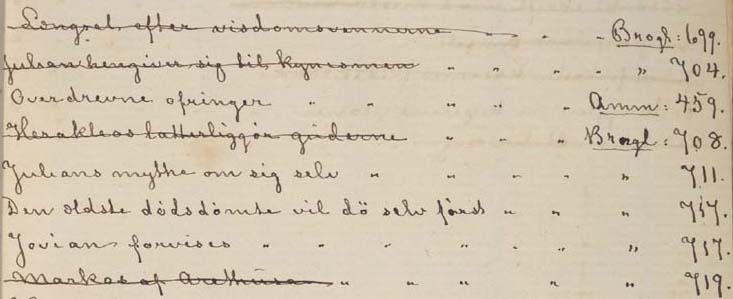 Længsel efter visdomsvennerne " " " Brogl: 699.
Julian hengiver sig til kynismen " " " " " 704.
Overdrevne ofringer " " " " " Amm: 459.
Herakleos latterliggør guderne " " " Brogl: 708.
Julians mythe om sig selv " " " " " 711.
Den ældste dödsdömte vil dö selv först " " " " 717.
Jovian forvises " " " " " " " 717.
Markos af Arethusa " " " " " 719.